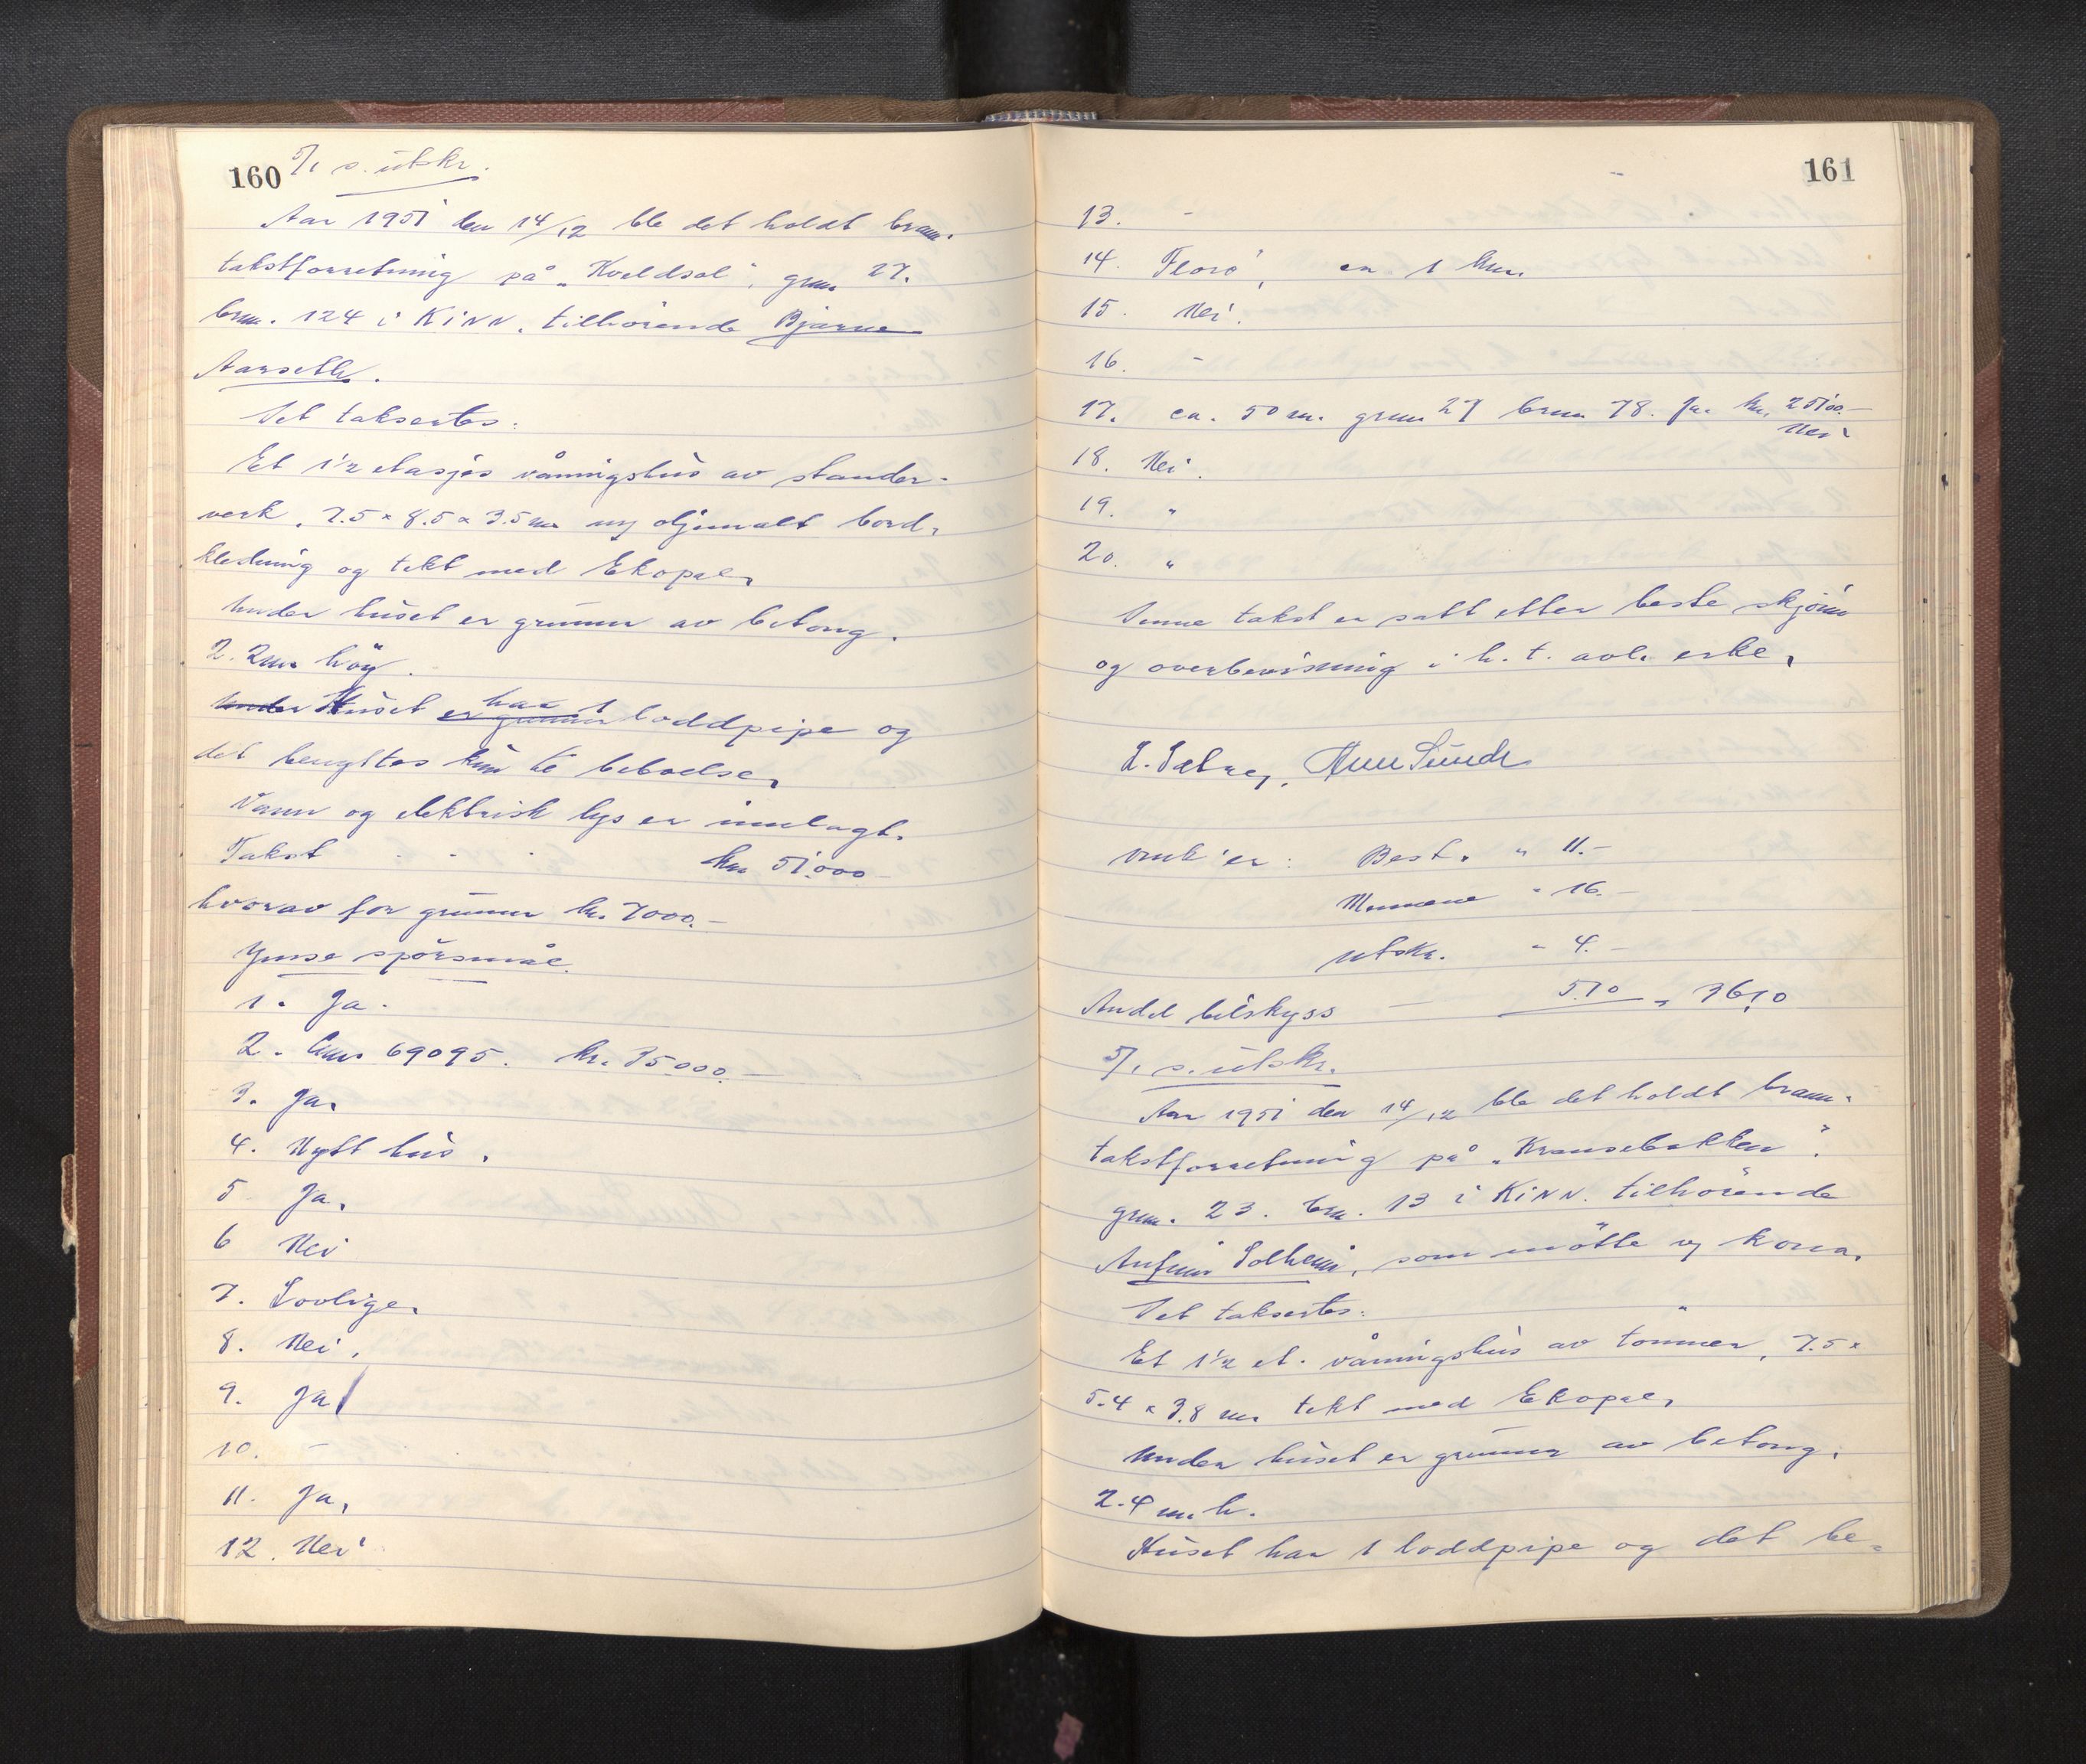 160 5/1 s. utskr.
Aar 1951 den 14/12 ble det holdt brann-
takstforretning på „Kveldsol", gnr. 27.
brnr. 124 i KiNN. tilhörende Bjarne
Aarseth.
Det taksertes:
Et 1½ etasjes våningshus av stender-
verk. 7.5 x 8.5 x 3.5 m m/ oljemalt bord-
kledning og tekt med Ekopal.
Under huset er grunnm av betong.
2.2 m. höy.
Under Huset er grunnm har 1 loddpipe og
det benyttes kun til beboelse.
Vann og elektrisk lys er innlagt.
Takst . - . kr 51.000-
hvorav for grunnm kr. 7000.-
Ymse spörsmål.
1. Ja.
2. Anr. 69095. kr. 35.000.-
3. Ja.
4. Nytt hus.
5 Ja.
6 Nei
7. Lovlige.
8. Nei.
9. Ja
10. -
11. Ja.
12. Nei
161
13. -
14. Florö, ca 1 km.
15. Nei.
16. -
17. ca. 50 m. gnr 27 brnr 78. Ja. kr. 25100.-
Nei
18. Nei.
19. "
20. "
Denne takst er satt etter beste skjönn
og overbevisning i h. t. avl. ed.
Omk'er: Best. " 11.-
Mennene " 16.-
utskr. - 4.-
Andel bilskyss - 5.10 = 36,10
5/1 s. utskr.
Aar 1951 den 14/12 ble det holdt brann-
takstforretning på „Kransebakken".
gnr. 23. brnr. 13 i KiNN. tilhörende
Anfinn Solheim, som mötte v/ kona.
Det taksertes:
Et 1½ et. våningshus av tömmer, 7.5 x
5.4 x 3.8 m. tekt med Ekopal.
Under huset er grunnm av betong.
2.4 m. h.
Huset har 1 loddpipe og det be-